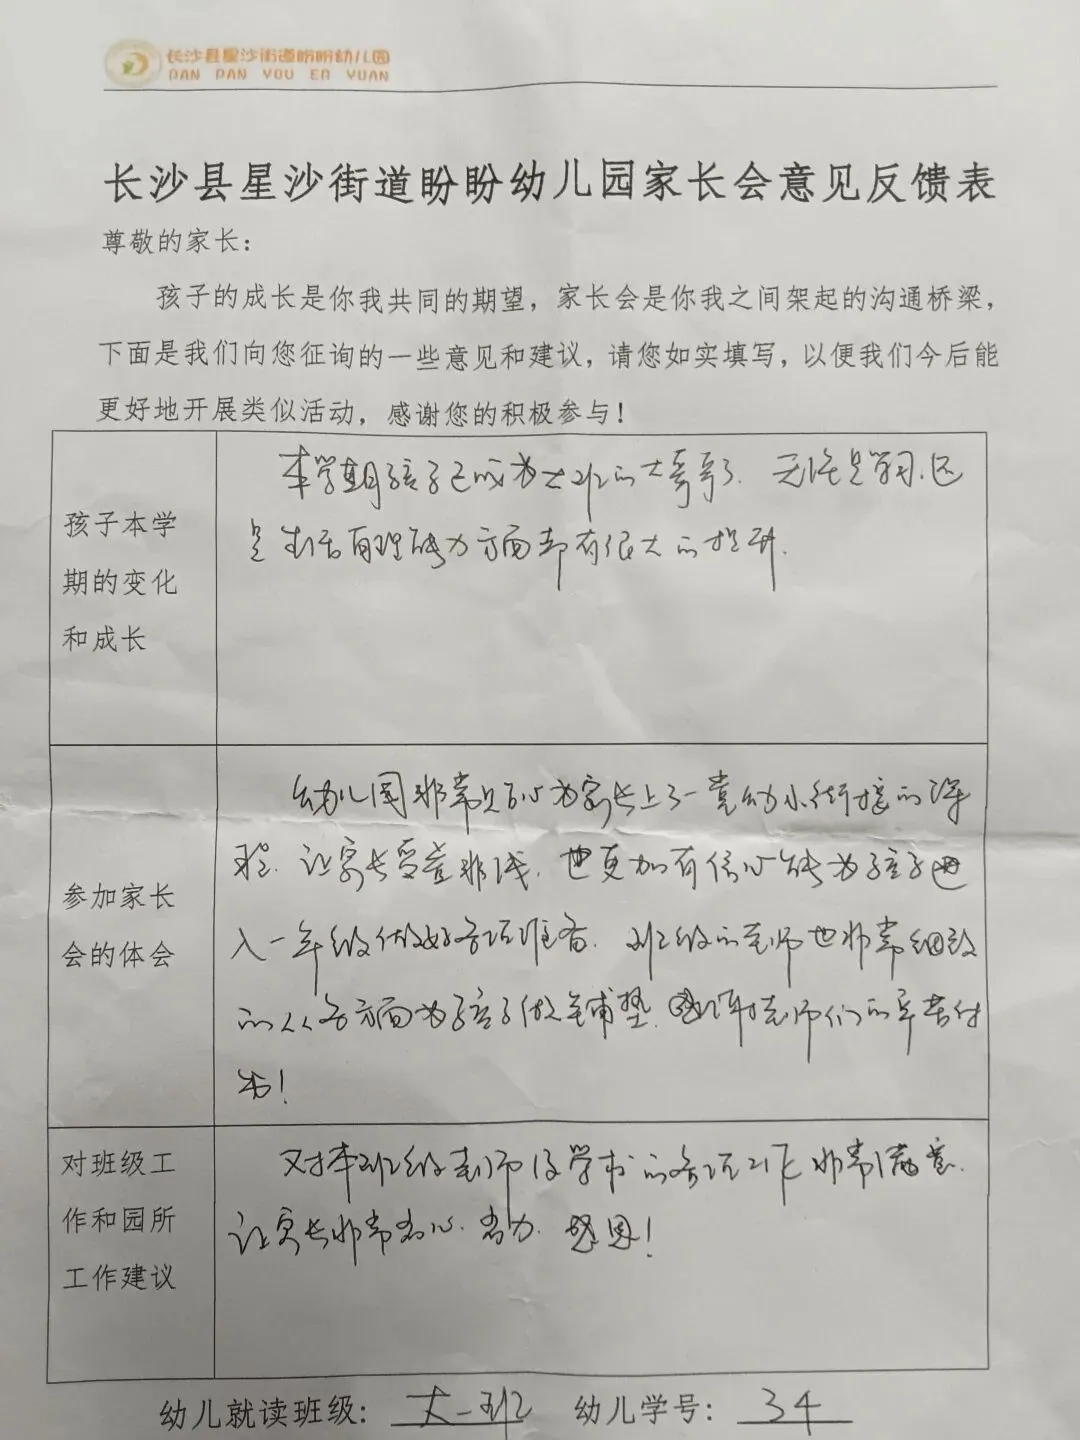 长沙县星沙街道盼盼幼儿园
PAN PAN YOU ER YUAN
长沙县星沙街道盼盼幼儿园家长会意见反馈表
尊敬的家长：
孩子的成长是你我共同的期望，家长会是你我之间架起的沟通桥梁，
下面是我们向您征询的一些意见和建议，请您如实填写，以便我们今后能
更好地开展类似活动，感谢您的积极参与！
孩子本学
期的变化
和成长
本学期孩子已成为大班的大哥哥了．无论是学习，还
是生活自理能力方面都有很大的提升．
参加家长
会的体会
幼儿园非常贴心为家长上了一堂幼小衔接的课
程．让家长受益匪浅．也更加有信心能为孩子进
入一年级做好各项准备．班级的老师也非常细致
的从各方面为孩子做铺垫．感谢老师们的辛苦付
出！
对班级工
作和园所
工作建议
对本班级老师及学校的各项工作非常满意．
让家长非常省心．省力．感恩！
幼儿就读班级：大一班 幼儿学号：34